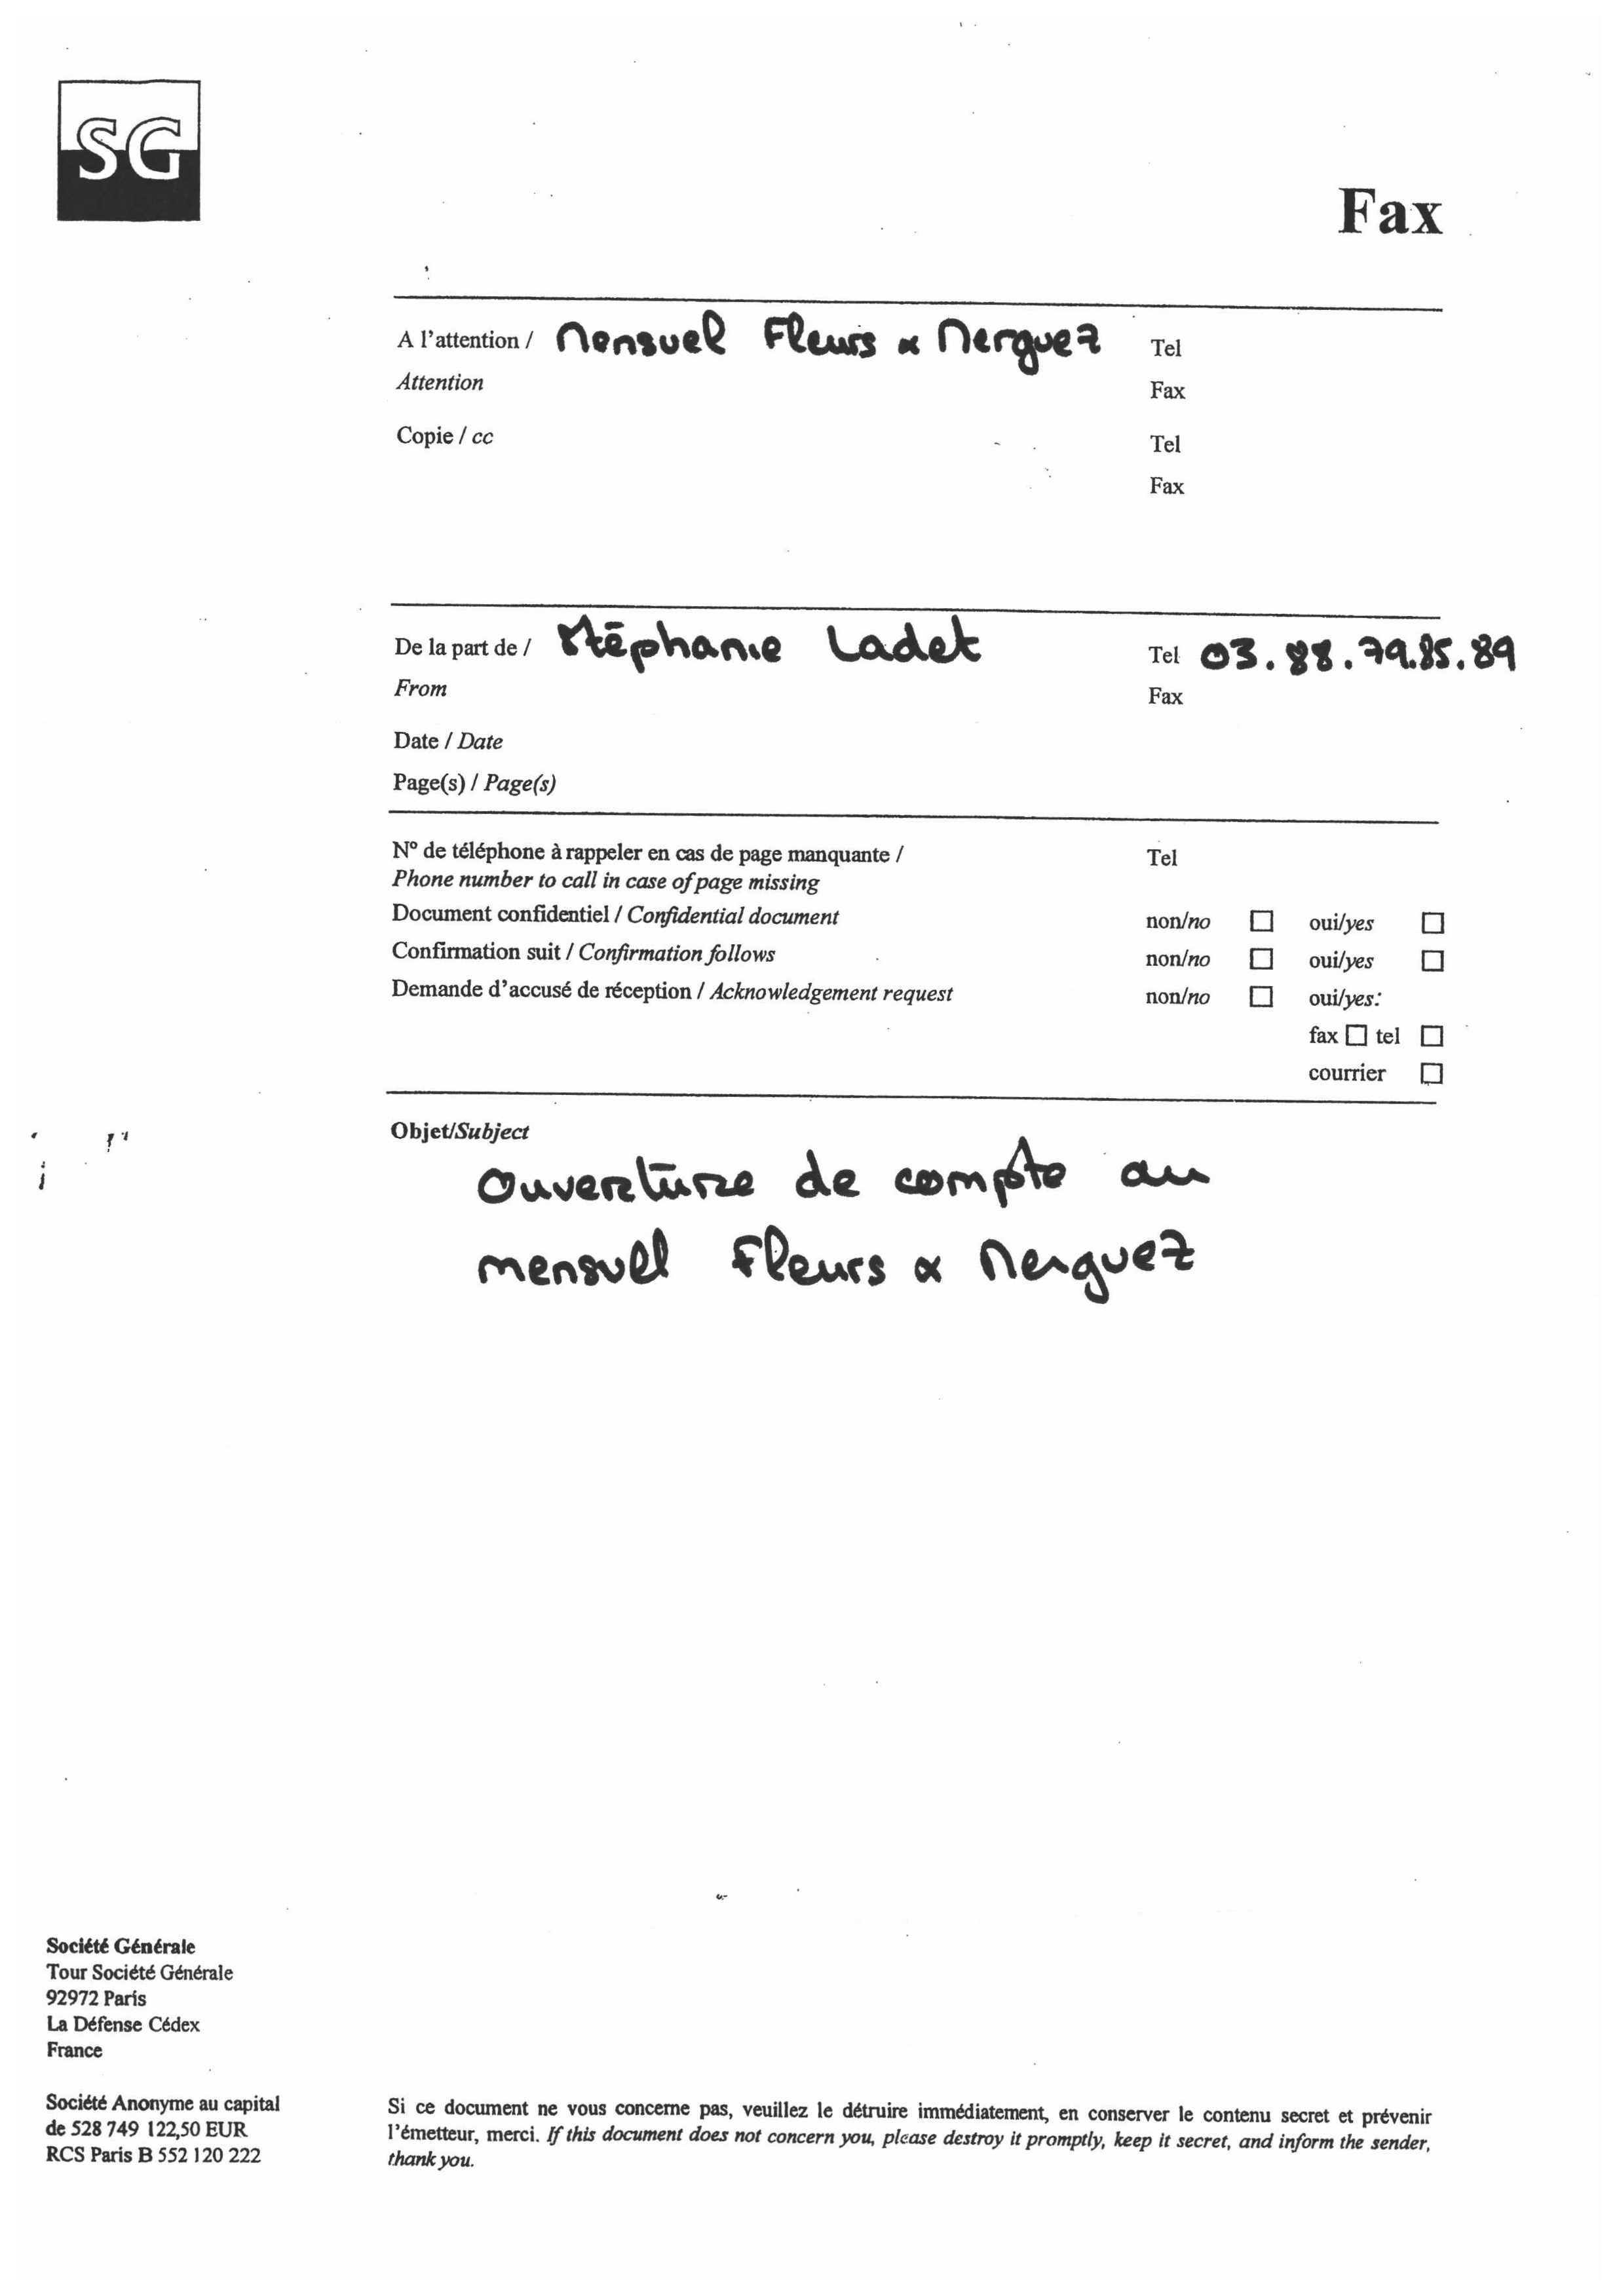 SG
Fax
A l'attention / Mensuel Fleurs & Merguez Tel
Attention Fax
Copie / cc Tel
Fax
De la part de / Stéphanie Ladet Tel 03.88.79.85.89
From Fax
Date / Date
Page(s) / Page(s)
N° de téléphone à rappeler en cas de page manquante / Tel
Phone number to call in case of page missing
Document confidentiel / Confidential document non/no ☐ oui/yes ☐
Confirmation suit / Confirmation follows non/no ☐ oui/yes ☐
Demande d'accusé de réception / Acknowledgement request non/no ☐ oui/yes:
fax ☐ tel ☐
courrier ☐
Objet/Subject
ouverture de compte au
mensuel Fleurs & Merguez
Société Générale
Tour Société Générale
92972 Paris
La Défense Cédex
France
Société Anonyme au capital
de 528 749 122,50 EUR
RCS Paris B 552 120 222
Si ce document ne vous concerne pas, veuillez le détruire immédiatement, en conserver le contenu secret et prévenir
l'émetteur, merci. If this document does not concern you, please destroy it promptly, keep it secret, and inform the sender,
thank you.